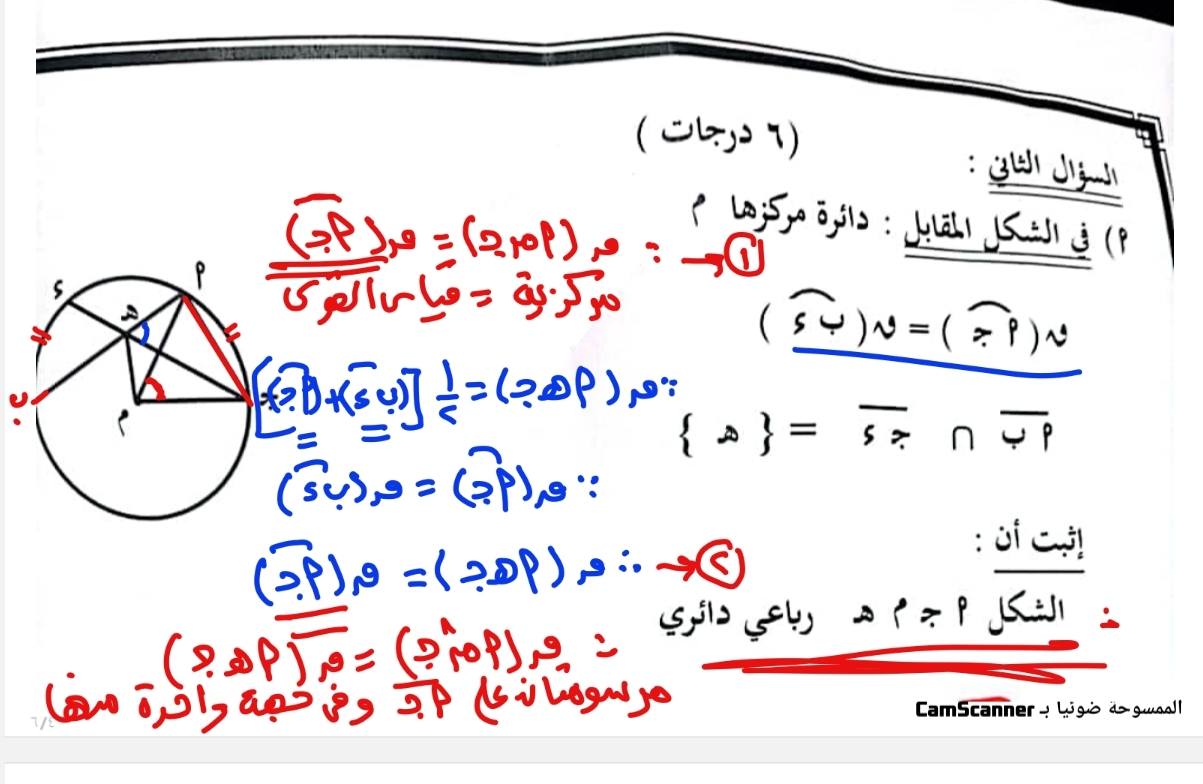 ( ٦ درجات )
السؤال الثاني :
٢) في الشكل المقابل : دائرة مركزها م
ق( أ ج ) = ق( ب ء )
أ ب ∩ ج ء = { هـ }
إثبت أن :
∴ الشكل أ ج م هـ رباعي دائري
① ← ∵ ق (أ م ج) = ق (أ ج)
مركزية = قياس القوس
∵ ق (أ هـ ج) = ١/٢ [(ب ء) + (أ ج)]
∵ ق (أ ج) = ق (ب ء)
② ← ∴ ق (أ هـ ج) = ق (أ ج)
∵ ق (أ م ج) = ق (أ هـ ج)
مرسومتان على أ ج وفي جهة واحدة منها
أ
ء
هـ
ب
م
٦/٤
الممسوحة ضوئيا بـ CamScanner